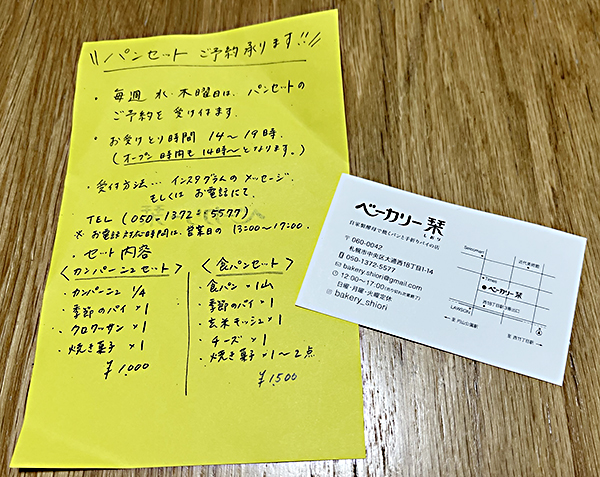 \\ パンセット ご予約承ります!! //
・毎週 水・木曜日は、パンセットの
ご予約を 受け付ます.
・お受けとり時間 14〜19時.
(オープン時間も 14時〜となります。)
・受付方法… インスタグラムの メッセージ.
もしくは お電話にて.
TEL (050-1372-5577)
※ お電話対応時間は、営業日の 13:00〜17:00.
・セット内容
<カンパーニュセット>
・カンパーニュ 1/4
・季節のパイ × 1
・クロワッサン × 1
・焼き菓子 × 1
¥1,000
<食パンセット>
・食パン × 1山
・季節のパイ × 1
・玄米モッシュ × 1
・チーズ × 1
・焼き菓子 × 1〜2点
¥1,500
ベーカリー 栞
しおり
自家製酵母で焼くパンと手折りパイの店
〒060-0042
札幌市中央区大通西18丁目1-14
050-1372-5577
bakery.shiori@gmail.com
12:00〜17:00(売り切れ次第終了)
日曜・月曜・火曜定休
@bakery_shiori
近代美術館
ベーカリー栞
LAWSON
西18丁目駅
← 至 円山公園駅
至 西11丁目駅 →